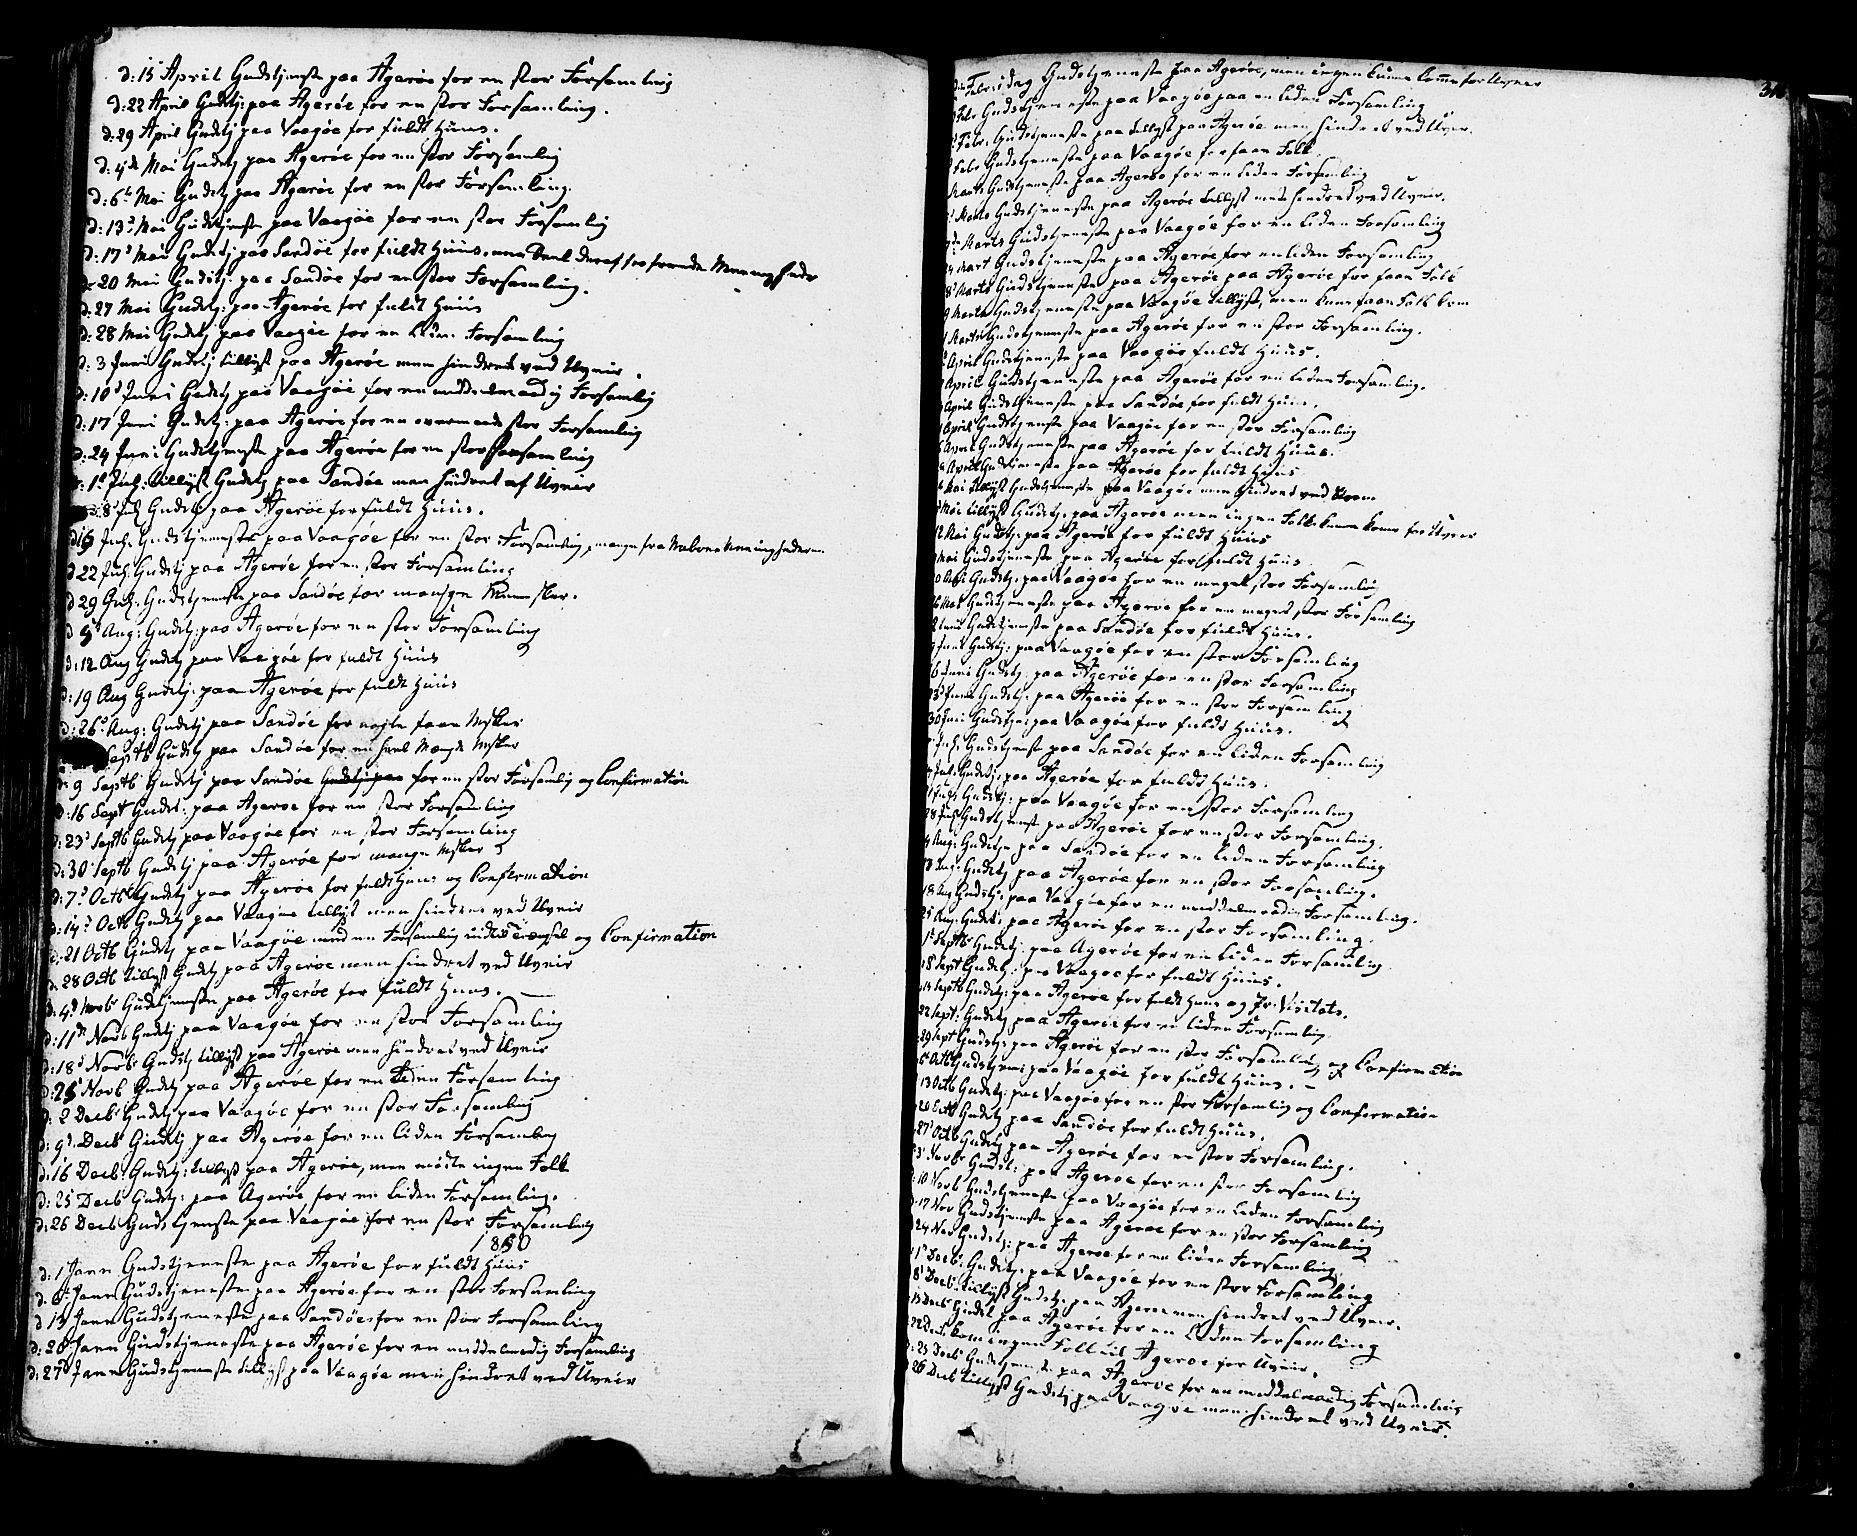 d: 15 April Gudstjenste paa Agerøe for en stor Forsamling
d: 22 April Gudstj: paa Agerøe for en stor Forsamling.
d: 29 April Gudstj paa Vaagøe for fuldt Huus.
d: 4de Mai Gudstj paa Agerøe for en stor Forsamlig
d: 6te Mai Gudstj paa Agerøe for en stor Forsamling.
d: 13d Mai Gudstjenste paa Vaagöe for en stor Forsamlig
d: 17d Mai Gudstj paa Sandøe for fuldt Huus, men Deel deraf fra fremde Menigheder
d: 20 Mai Gudstj: paa Sandøe for en stor Forsamling.
d: 27 Mai Gudstj: paa Agerøe for fuldt Huus
d: 28 Mai Gudstj paa Vaagøe for en liden Forsamling
d: 3 Juni Gudstj tillyst paa Agerøe men hindret ved Uveir.
d: 10d Juni Gudstj paa Vaagöe for en middelmaadig Forsamlig
d: 17 Juni Gudstj: paa Agerøe for en overmaade stor Forsamling
d: 24 Juni Gudstjenste paa Agerøe for en stor Forsamling
d: 1d Juli: tillyst Gudstj paa Sandøe men hindret af Uveir
8d Juli Gudstj paa Agerøe for fuldt Huus.
d 15 Juli: Gudstjeneste paa Vaagøe for en stor Forsamling, mange fra Naboe Menighederne
d 22 Juli: Gudstj paa Agerøe for en stor Forsamling
d 29 Juli: Gudstjenste paa Sandøe for mangen Mennesker.
d 5d Aug: Gudstj: paa Agerøe for en stor Forsamling
d: 12 Aug Gudstj paa Vaagøe for fuldt Huus
d: 19 Aug Gudstj: paa Agerøe for fuldt Huus
d: 26d Aug: Gudstj paa Sandøe for nogle faae Msker
Septb Gudstj paa Sandøe for en heel Mængde Msker
d: 9 Septb Gudstj paa Sandøe for en stor Forsamlig og Confirmation
d: 16 Sept Gudst: paa Agerøe for en stor Forsamling
d: 23d Septb Gudstj paa Vaagøe for en stor Forsamling
d: 30 Septb Gudstj paa Agerøe for mange Msker
d: 7d Octb Gudstj paa Agerøe for fuldt Huus og Confirmation
d: 14d Octb Gudstj paa Vaagøe tillyst men hindret ved Uveir
d: 21 Octb Gudstj paa Vaagöe med en Forsamlig og Confirmation
d: 28 Octb tillyst Gudstj paa Agerøe men hindret ved Uveir
d: 4d Novb Gudstjenste paa Agerøe for fuldt Huus.
d: 11te Novb Gudstj paa Vaagøe for en stor Forsamling
d: 18d Novb: Gudstj tillyst paa Agerøe men hindret ved Uveir
d: 25 Novb Gudstj paa Agerøe for en liden Forsamling
d: 2 Decb Gudstj paa Vaagøe for en stor Forsamling
d: 9d. Decb Gudstj paa Agerøe for en liden Forsamling
d: 16 Decb: Gudstj: tillyst paa Agerøe, men mødte ingen Folk
d: 25 Decb Gudstj: paa Agerøe for en liden Forsamling.
d: 26 Decb Gudstjenste paa Vaagøe for en stor Forsamling
1850
d: 1 Janr Gudstjeneste paa Agerøe for fuldt Huus
d. 6t Janr Gudstjeneste paa Agerøe for en stor Forsamling
d 13 Janr Gudstjeneste paa Sandøe for en stor Forsamling
d: 20 Janr Gudstjeneste paa Agerøe for en middelmadig Forsamling
d: 27d Janr Gudstjeneste tillyst paa Vaagøe men hindret ved Uveir
Febr: Gudstjeneste paa Agerøe, men ingen kunne komme for Uveir
Febr Gudstjeneste paa Vaagøe paa en liden Forsamling
Febr: Gudstjeneste paa tillyst paa Agerøe men hindret ved Uveir.
Febr Gudstjeneste paa Vaagøe for faae Folk
Marts Gudstjeneste paa Agerøe for en liden Forsamling
Marts Gudstjeneste paa Agerøe tillyst men hindret ved Uveir.
Marts Gudstjeneste paa Vaagøe for en liden Forsamling
Mart Gudstjeneste paa Agerøe for en liden Forsamling
Marts Gudstjeneste paa Agerøe paa Agerøe for faae Folk
Marts Gudstjeneste paa Vaagøe tillyst, men kuns faae Folk kom
Marts Gudstjeneste paa Agerøe for en stor Forsamling.
April Gudstjeneste paa Vaagøe fuldt Huus.
April Gudstjeneste paa Agerøe for en liden Forsamling.
April Gudstjeneste paa Sandøe for fuldt Huus.
April Gudstjenste paa Vaagøe for en stor Forsamling
April Gudstjeneste paa Agerøe for fuldt Huus.
April Gudstjeneste paa Agerøe for fuldt Huus
Mai tillyst Gudstjeneste paa Vaagøe men hindret ved Uveir
Mai tillyst Gudstj: paa Agerøe men ingen Folk kunne komme for Uveir
12 Mai Gudstj: paa Agerøe for fuldt Huus
Mai Gudstjeneste paa Agerøe for fuldt Huus
Mai Gudstj: paa Vaagøe for en meget stor Forsamling
Mai Gudstjeneste paa Agerøe for en meget stor Forsamling
Juni Gudstjenste paa Sandøe for fuldt Huus.
Juni Gudstj: paa Vaagøe for en stor Forsamling
Juni Gudstj paa Agerøe for en stor Forsamling
23d Juni Gudstj: paa Agerøe for en stor Forsamling
30 Juni Gudstj: paa Vaagøe for fuldt Huus.
Juli: Gudstjenst paa Sandøe for en liden Forsamling
Juli: Gudstj: paa Agerøe for fuldt Huus.
Juli Gudstj: paa Vaagøe for en stor Forsamling
28 Juli Gudstjenst paa Agerøe for en stor Forsamling.
4 Aug: Gudstje paa Sandøe for en liden Forsamling
Aug: Gudstj paa Agerøe for en stor Forsamling.
18 Aug Gudstj: paa Vaagøe for en middelmaadig Forsamling.
25 Aug: Gudst: paa Agerøe for en stor Forsamling.
1d Septb Gudstj: paa Agerøe for en liden Forsamling
8d Sept Gudstj: paa Vaagøe for fuldt Huus.
14 Septb Gudstj: paa Agerøe for fuldt Huus og Pr: Visitats.
22 Sept: Gudstj paa Agerøe for en liden Forsamling
29 Sept Gudstj: paa Agerøe for en stor Forsamling og Confirmation
6t Octb Gudstjenst paa Vaagøe for fuldt Huus.
13 Octb Gudstj: paa Vaagøe for en stor Forsamling og Confirmation
20 Octb Gudstj paa Sandøe for fuldt Huus.
27d Octb Gudstj paa Agerøe for en stor Forsamling.
3d Novb: Gudst: paa Agerøe for en stor Forsamling
10 Novb Gudstjeneste paa Vaagøe for en liden Forsamling
17 Nov Gudstjeneste paa Agerøe for en stor Forsamling
24 Nov Gudstj: paa Agerøe for en liden Forsamling
1d Decb: Gudstj: paa Vaagøe for en stor Forsamling
8d Decb: tillyst Gudstj: paa Agerøe men hindret ved Uveir.
15 Decb Gudst paa Agerøe for en liden Forsamling
22 Decb kom ingen Folk til Agerøe for Uveir.
25 Decb Gudstjenste paa Agerøe for en middelmaadig Forsamling
26 Decb tillyst Gudstj paa Vaagøe men hindret ved Uveir.